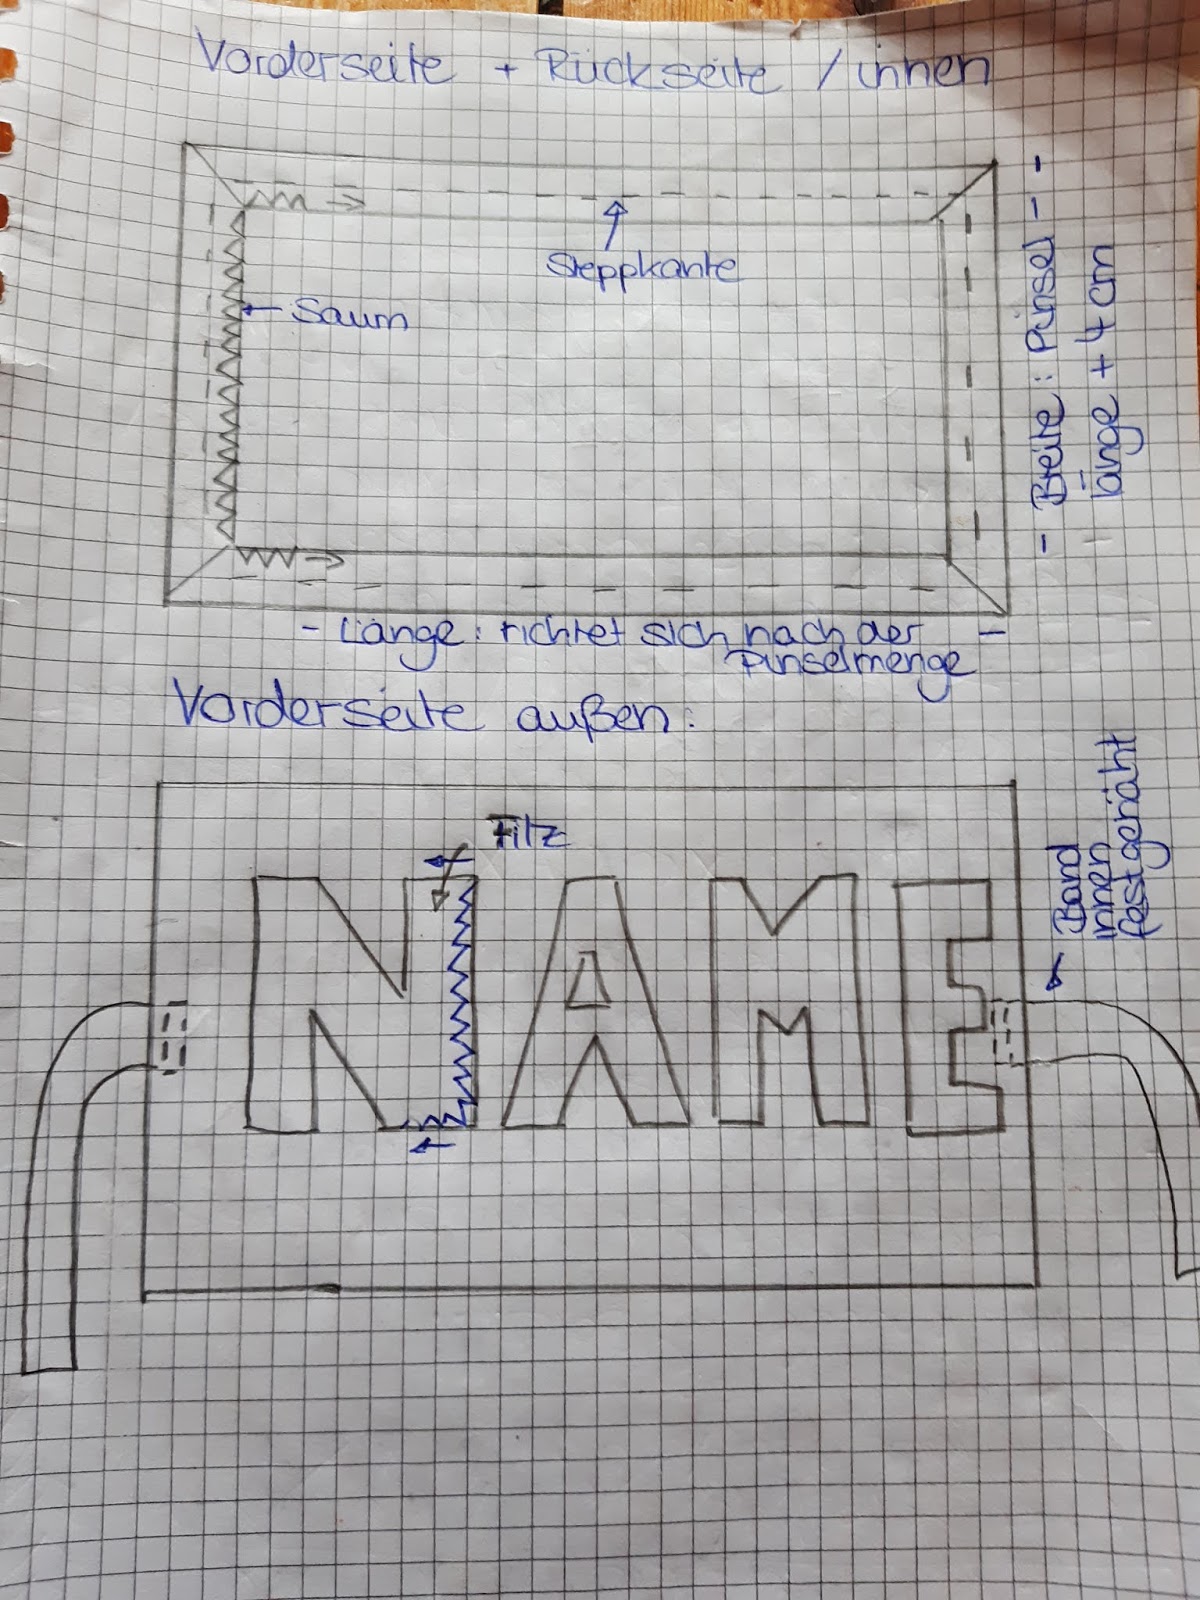 Vorderseite + Rückseite / innen
Steppkante
Saum
- Breite: Pinsel - -
länge + 4 cm
- Länge: richtet sich nach der -
Pinselmenge
Vorderseite außen:
Filz
Band
innen
festgenäht
NAME